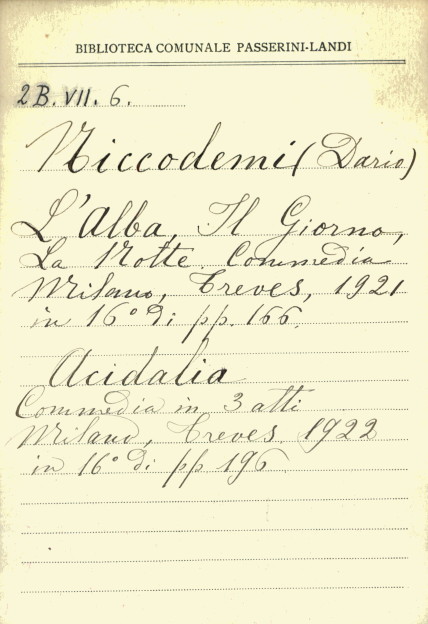 BIBLIOTECA COMUNALE PASSERINI-LANDI
2B. VII. 6.
Niccodemi (Dario)
L'Alba, Il Giorno,
La Notte. Commedia
Milano, Treves, 1921
in 16° di pp. 166.
Acidalia
Commedia in 3 atti
Milano, Treves. 1922
in 16° di pp 196